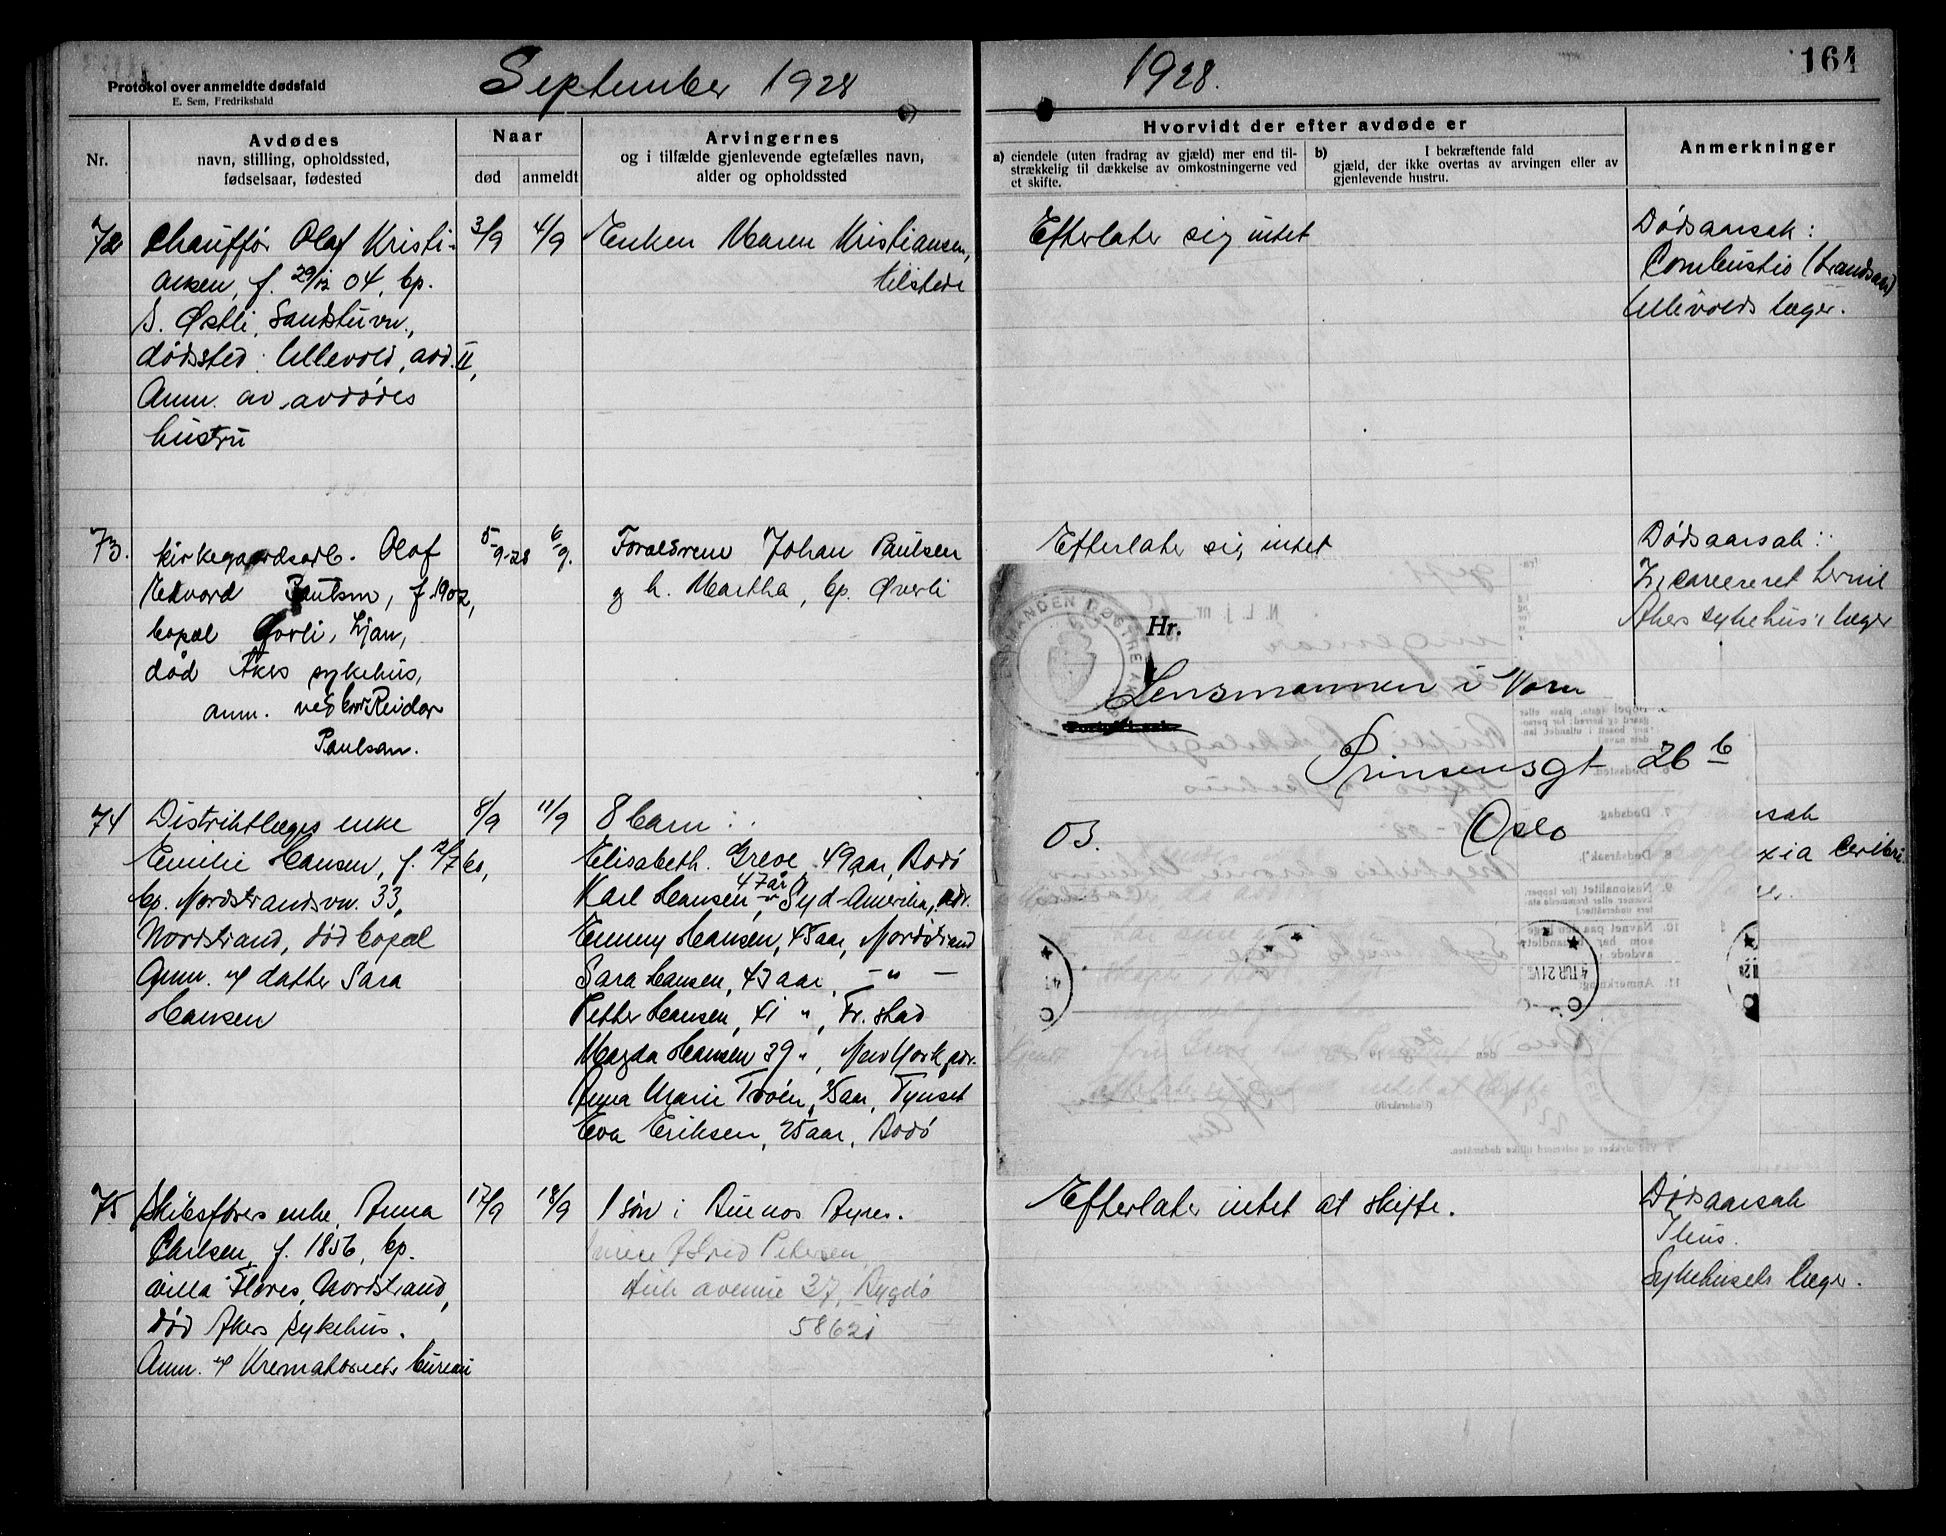 Protokol over anmeldte dødsfald
E. Sem, Fredrikshald
September 1928
1928.
164
Nr.
Avdødes
navn, stilling, opholdssted,
fødselsaar, fødested
Naar
død
anmeldt
Arvingernes
og i tilfælde gjenlevende egtefælles navn,
alder og opholdssted
Hvorvidt der efter avdøde er
a) eiendele (uten fradrag av gjæld) mer end til-
strækkelig til dækkelse av omkostningerne ved
et skifte.
b) I bekræftende fald
gjæld, der ikke overtas av arvingen eller av
gjenlevende hustru.
Anmerkninger
72
Chauffør Olaf Kristi-
ansen, f. 29/12 04, bp.
S. Østli, Sandstuvn.,
dødssted: Ullevold, avd. II,
Anm. av avdødes
hustru
3/9
4/9
Enken Maren Kristiansen,
tilstede
Efterlater sig intet
Dødsaarsak:
Combustio (brandsaar)
Ullevolds læger.
73.
Kirkegaardsarb. Olaf
Edvard Paulsen, f. 1902,
bopæl Øvrli, Ljan,
død Akers sykehus,
anm. ved bror Reidar
Paulsen.
5/9-28
6/9.
Forældrene Johan Paulsen
og h. Martha, bp. Øverli
Efterlater sig intet
Dødsaarsak:
Incarcereret hernie
Akers sykehus's læger
Hr.
Lensmannen i Norn
Prinsensgt 26 b
Oslo
03.
74
Distriktlæges enke
Emilie Hansen, f. 12/7 60,
bp. Nordstrandsvn. 33,
Nordstrand, død bopæl
Anm. af datter Sara
Hansen
8/9
11/9
8 barn:
Elisabeth Greve, 49 aar, Bodø
Karl Hansen, 47 år, Syd-Amerika, adr.
Emmy Hansen, 45 aar, Nordstrand
Sara Hansen, 43 aar, - " -
Petter Hansen, 41 ", Fr.stad
Magda Hansen 39 ", New York, adr.
Anna Marie Trøen, 35 aar, Tynset
Eva Eriksen, 25 aar, Bodø
sak
xia cerebri
75
Skibsførers enke, Anna
Carlsen, f. 1856, bp.
villa Flores, Nordstrand,
død Akers sykehus.
Anm. af Krematoriets bureau
17/9
18/9
1 søn i Buenos Ayres.
niece Astrid Petersen,
avenue 37, Bygdø
58621
Efterlater intet at skifte.
Dødsaarsak
Ileus.
Sykehusets læger.